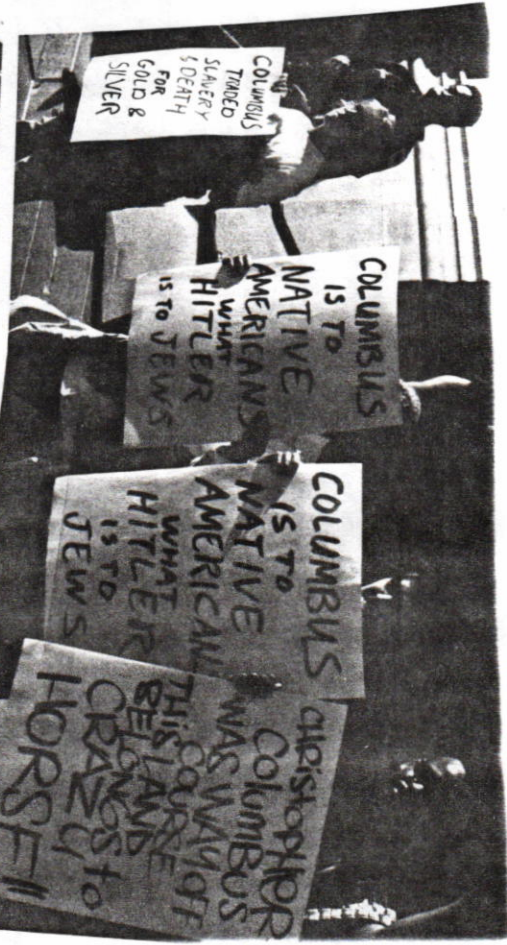 COLUMBUS
TRADED
SLAVERY
& DEATH
FOR
GOLD &
SILVER
COLUMBUS
IS TO
NATIVE
AMERICANS
WHAT
HITLER
IS TO JEWS
COLUMBUS
IS TO
NATIVE
AMERICAN
WHAT
HITLER
IS TO
JEWS
CHRISTOPHER
COLUMBUS
WAS WAY OFF
COURSE
THIS LAND
BELONGS to
CRAZY
HORSE!!